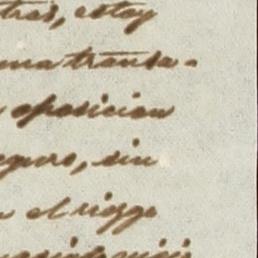 tras, estoy
una transa-
oposicion
eguro, sin
el riego